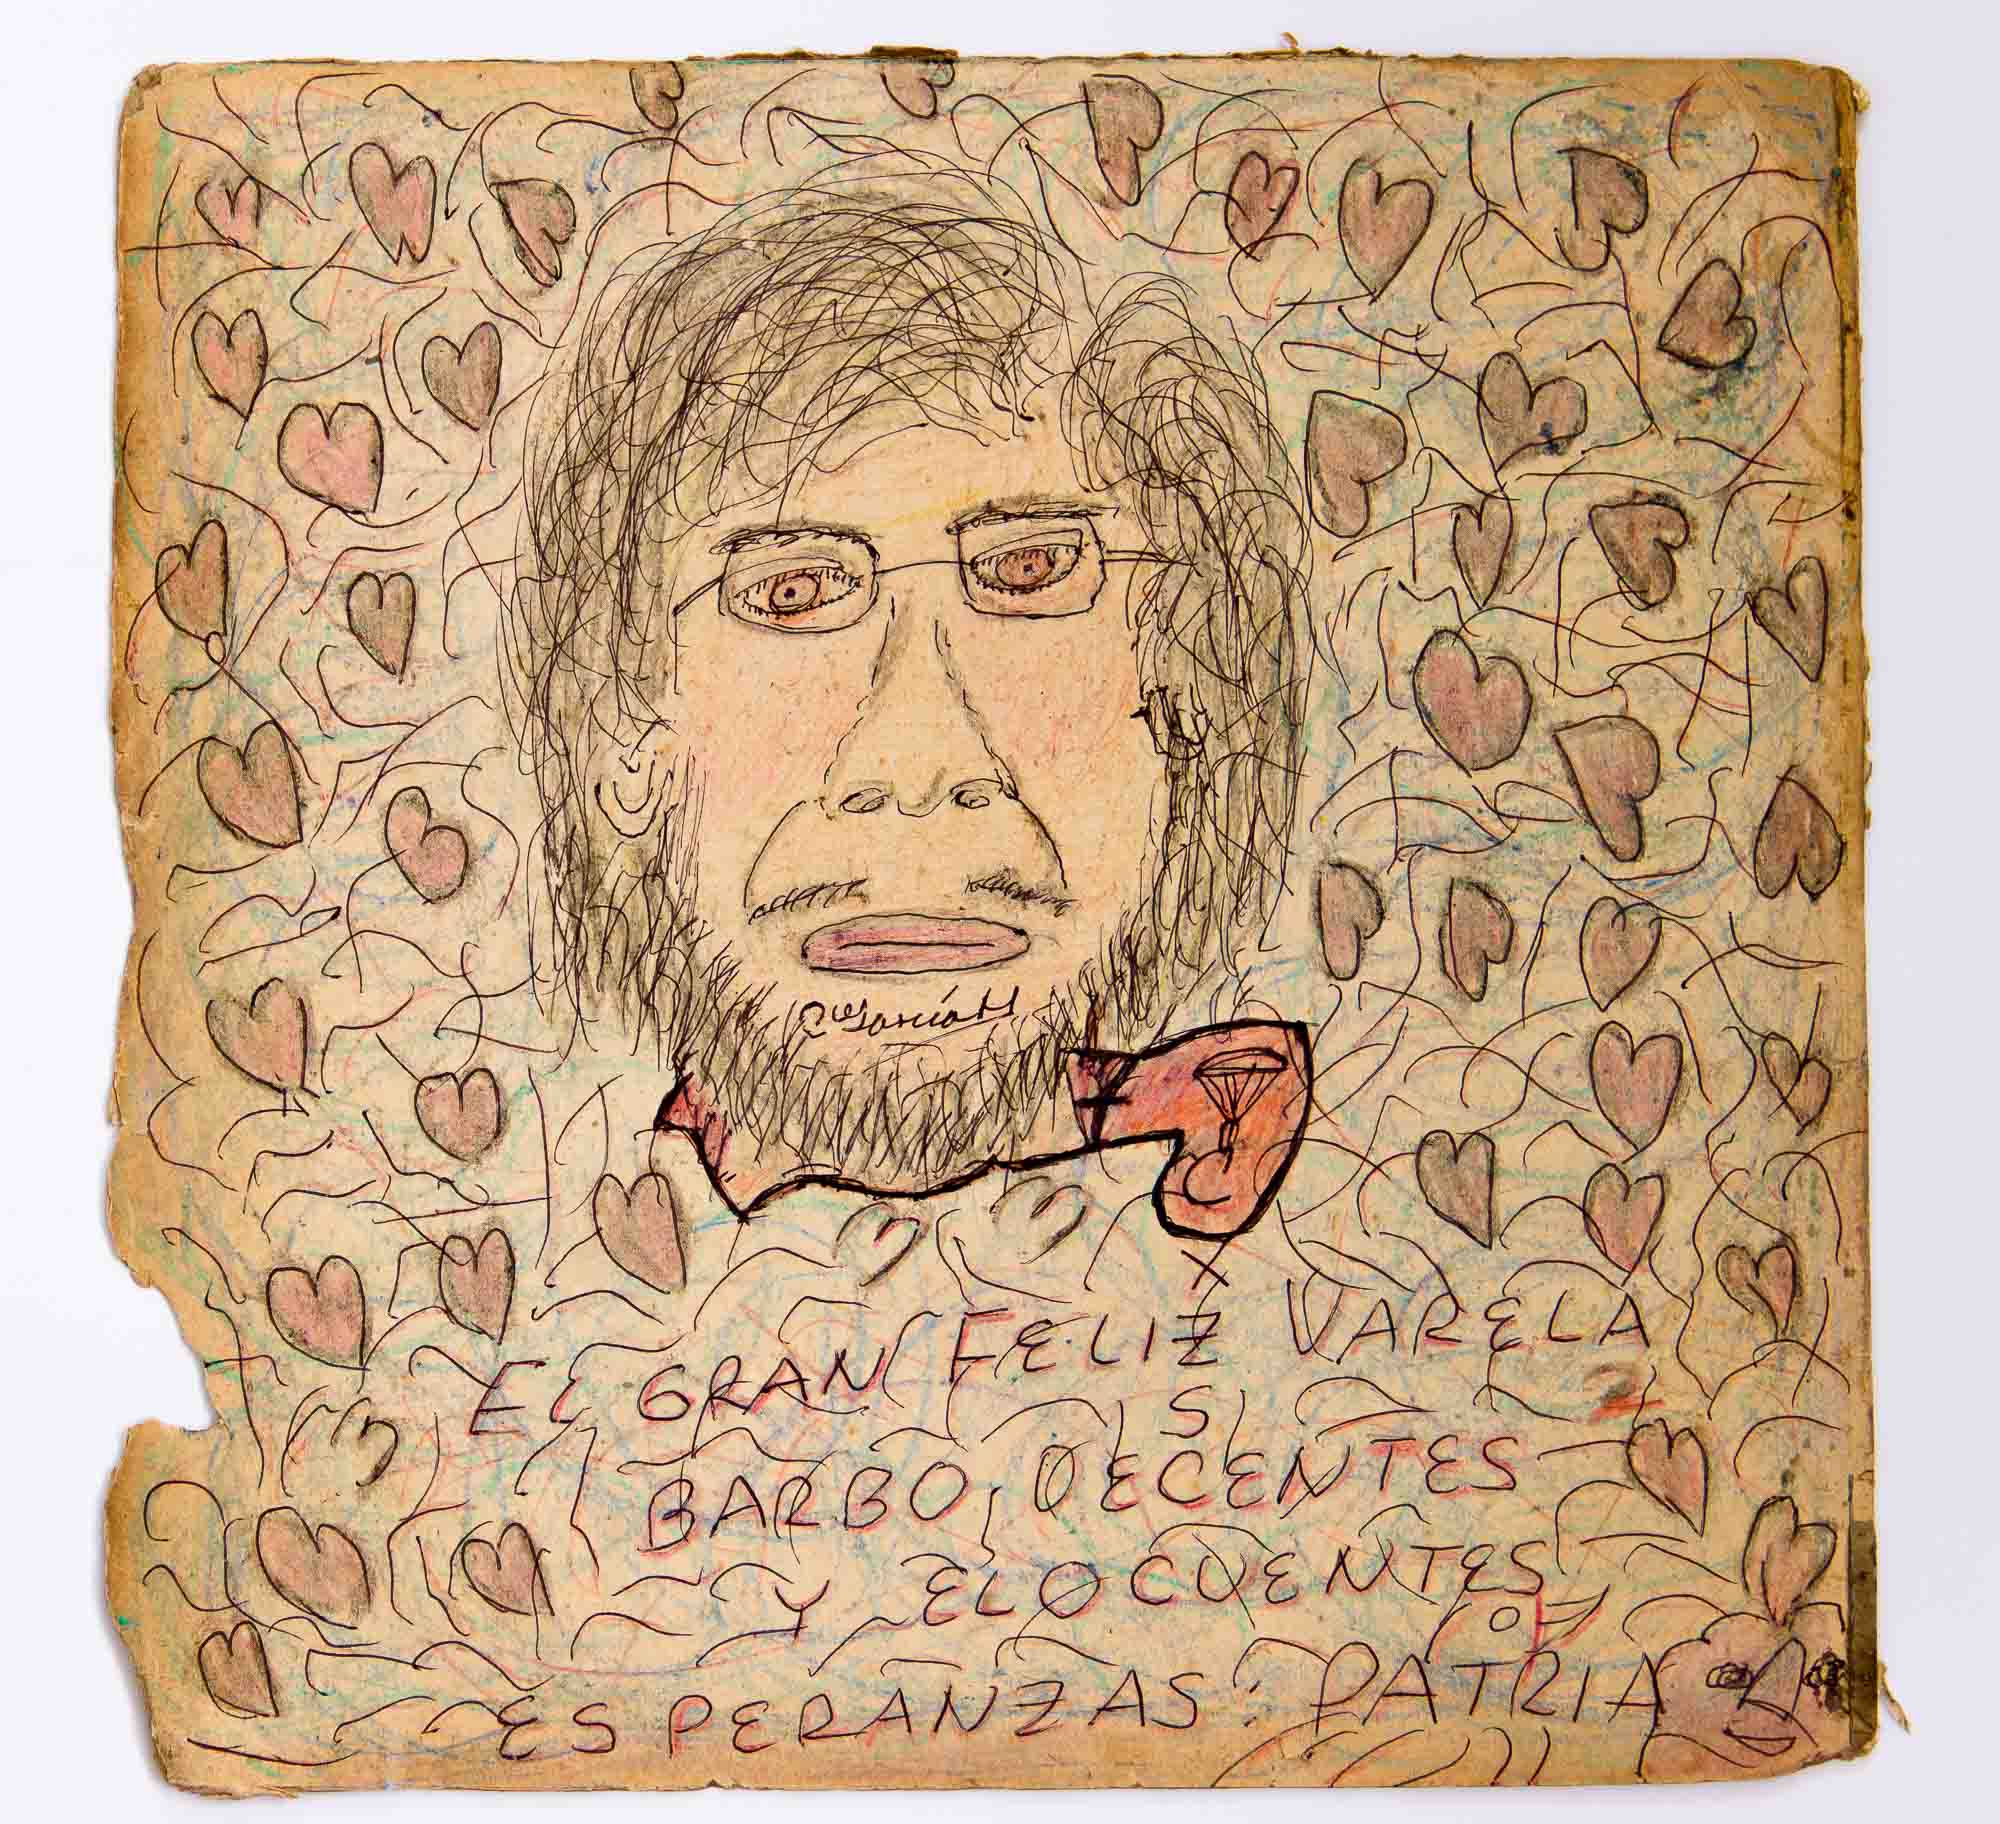 EL GRAN FELIZ VARELA
S
BARBO, DECENTES
Y ELOCUENTES
ESPERANZAS: PATRIA